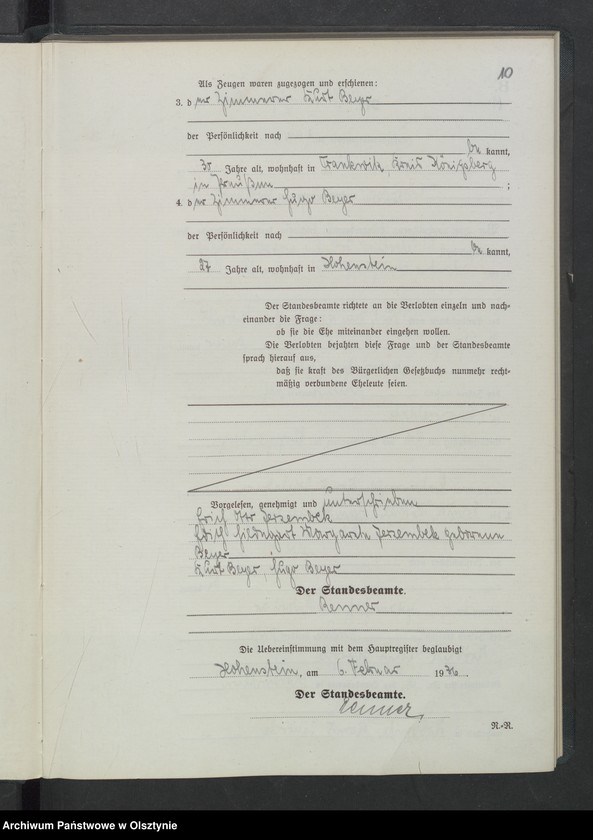 10
Als Zeugen waren zugezogen und erschienen:
3. der Zimmerer Kurt Beyer
der Persönlichkeit nach
be kannt,
30 Jahre alt, wohnhaft in Trankwitz, Kreis Königsberg
in Preußen ;
4. der Zimmerer Hugo Beyer
der Persönlichkeit nach
be kannt,
27 Jahre alt, wohnhaft in Hohenstein
Der Standesbeamte richtete an die Verlobten einzeln und nach-
einander die Frage:
ob sie die Ehe miteinander eingehen wollen.
Die Verlobten bejahten diese Frage und der Standesbeamte
sprach hierauf aus,
daß sie kraft des Bürgerlichen Gesetzbuchs nunmehr recht-
mäßig verbundene Eheleute seien.
Vorgelesen, genehmigt und unterschrieben
Erich Otto Jerzembek
Margarete Jerzembek geborene
Beyer
Kurt Beyer, Hugo Beyer
Der Standesbeamte.
Renner
Die Uebereinstimmung mit dem Hauptregister beglaubigt
Hohenstein, am 6. Februar 1936.
Der Standesbeamte.
Renner
R.-R.
Archiwum Państwowe w Olsztynie